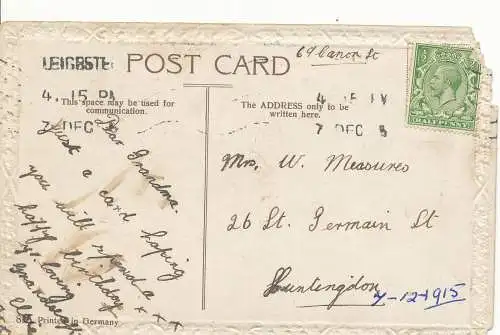 64 Canon St
LEICESTE
POST CARD
4.15 PM
7 DEC
This space may be used for
communication.
The ADDRESS only to be
written here.
7 DEC 5
HALFPENNY
Dear Grandma.
Just a card hoping
you will spend a
happy birthday
yr loving
grandson
x x x
Mrs. W. Measures
26 St. Germain St
Huntingdon
7-12-1915
Printed in Germany